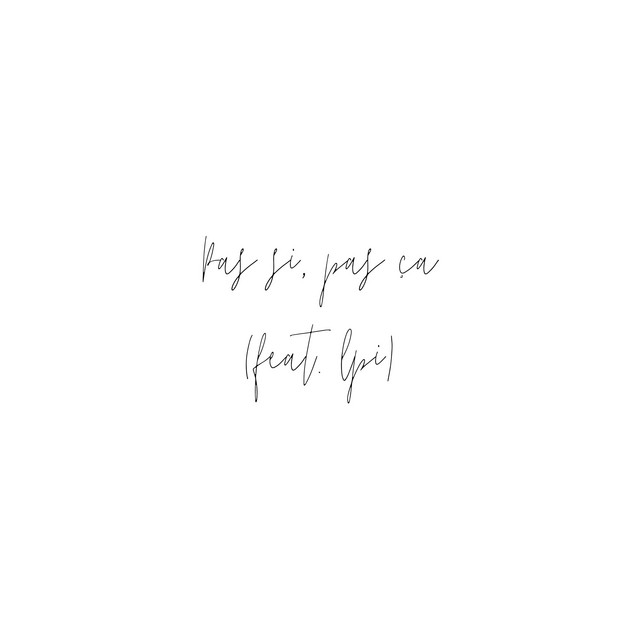 Pas si, pas ça
(feat. lpi)